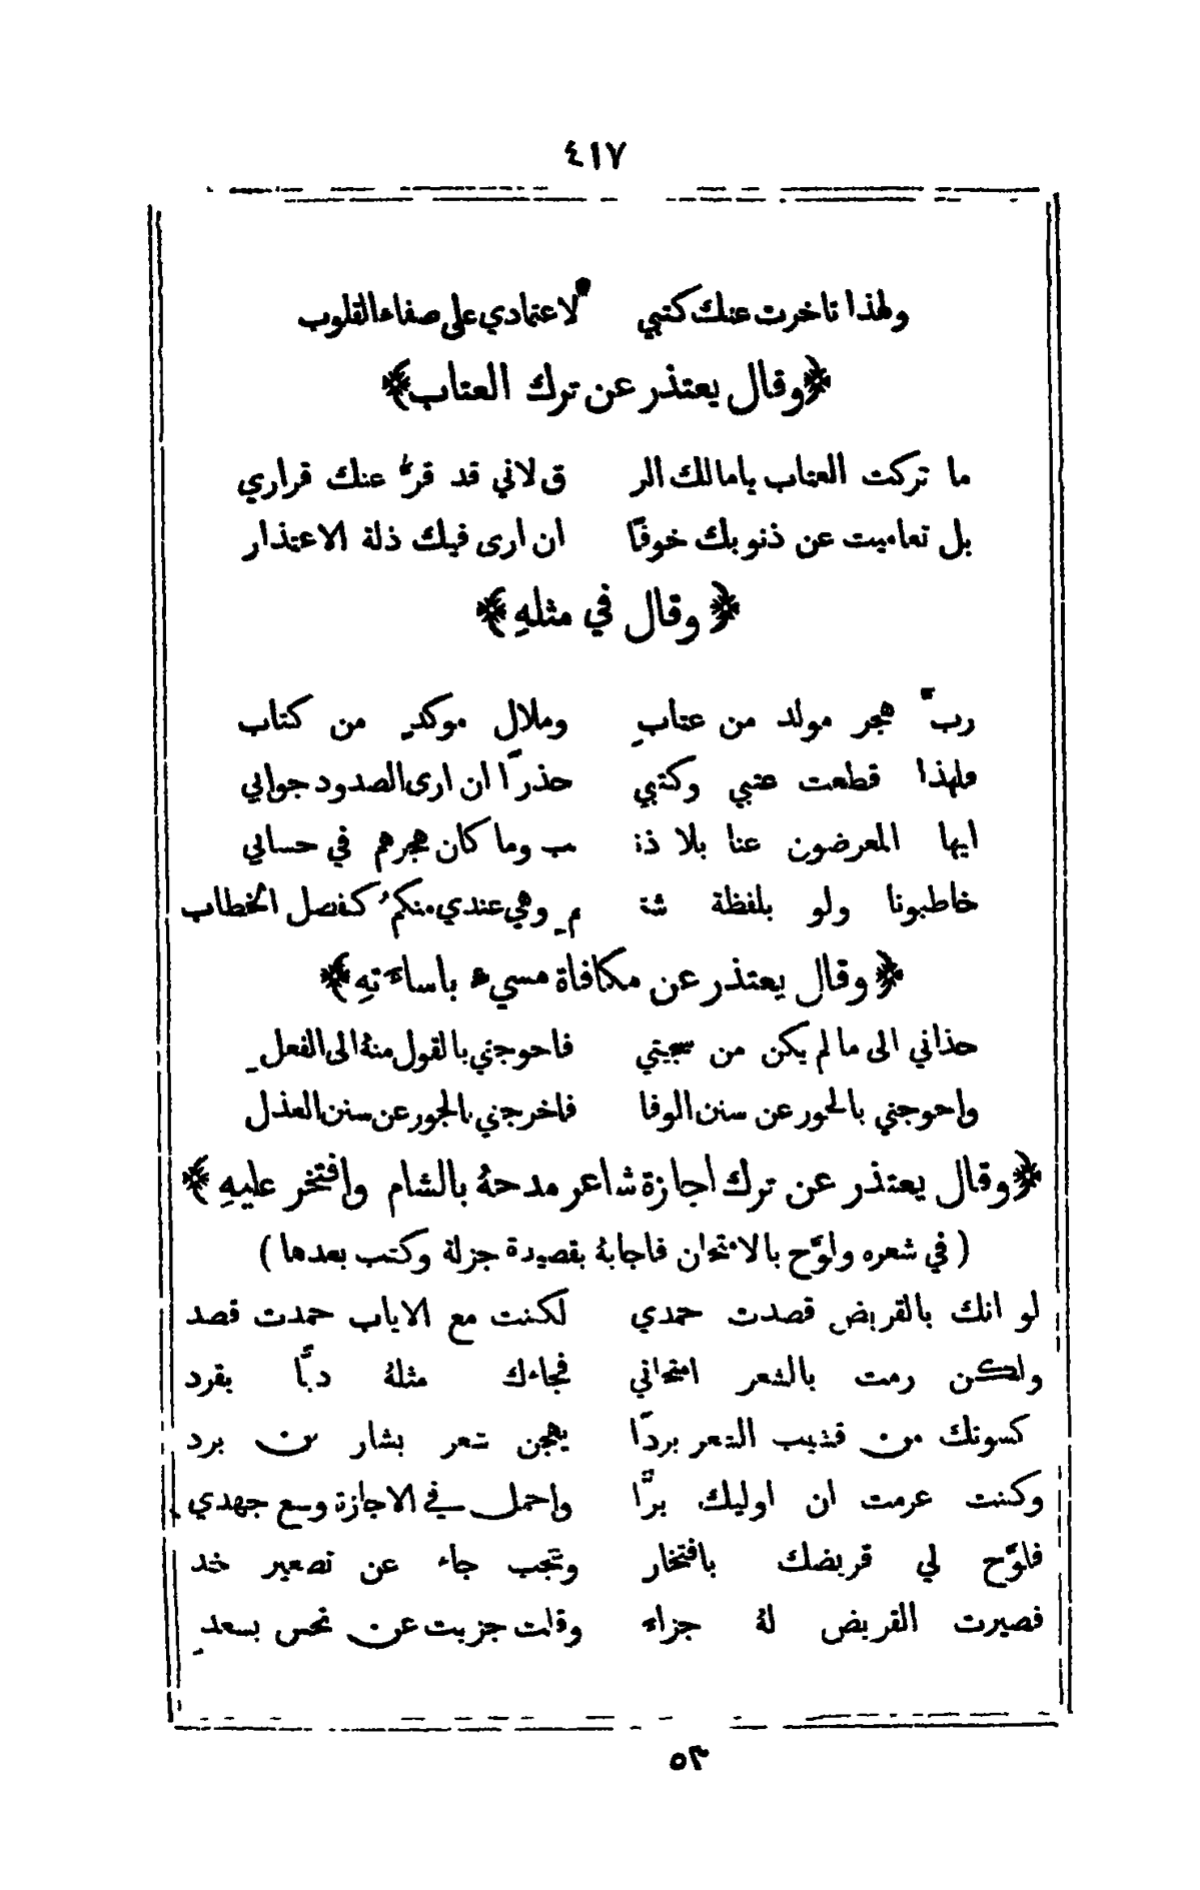 ٤١٧
ولهذا تاخرت عنك كتبي لاعتمادي على صفاء القلوب
﴿وقال يعتذر عن ترك العتاب﴾
ما تركت العتاب يامالك الر ق لاني قد قرَّ عنك قراري
بل تعاميت عن ذنوبك خوفًا ان ارى فيك ذلة الاعتذار
﴿ وقال في مثلهِ ﴾
ربَّ هجر مولد من عتابٍ وملال موكدٍ من كتاب
فلهذا قطعت عتبي وكتبي حذرًا ان ارى الصدود جوابي
ايها المعرضون عنا بلا ذنـ ـب وما كان هجرهم في حسابي
خاطبونا ولو بلفظة شتـ ـمٍ وهي عندي منكمُ كفصل الخطاب
﴿ وقال يعتذر عن مكافاة مسيء باساءتهِ ﴾
حذاني الى ما لم يكن من سجيتي فاحوجني بالقول منهُ الى الفعلِ
واحوجني بالجور عن سنن الوفا فاخرجني بالجور عن سنن العذل
﴿ وقال يعتذر عن ترك اجازة شاعر مدحهُ بالشام وافتخر عليهِ ﴾
( في شعره ولوَّح بالامتحان فاجابهُ بقصيدة جزلة وكتب بعدها )
لو انك بالقريض قصدت حمدي لكنت مع الاياب حمدت قصد
ولكن رمت بالشعر امتحاني فجاءك مثلهُ دبًّا بقرد
كسوتك من قشيب الشعر بردًا يهجن شعر بشار بن برد
وكنت عزمت ان اوليك برًّا واحمل في الاجازة وسع جهدي
فلوَّح لي قريضك بافتخار وتعجب جاء عن تصعير خد
فصيرت القريض لهُ جزاء وقلت جزيت عن نحس بسعدِ
٥٣